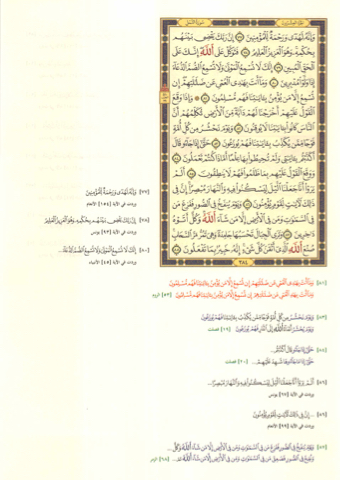 وَإِنَّهُ لَهُدًى وَرَحْمَةٌ لِّلْمُؤْمِنِينَ ۝ إِنَّ رَبَّكَ يَقْضِي بَيْنَهُم
بِحُكْمِهِ وَهُوَ الْعَزِيزُ الْعَلِيمُ ۝ فَتَوَكَّلْ عَلَى اللَّهِ إِنَّكَ عَلَى
الْحَقِّ الْمُبِينِ ۝ إِنَّكَ لَا تُسْمِعُ الْمَوْتَى وَلَا تُسْمِعُ الصُّمَّ الدُّعَاءَ
إِذَا وَلَّوْا مُدْبِرِينَ ۝ وَمَا أَنتَ بِهَادِي الْعُمْيِ عَن ضَلَالَتِهِمْ إِن
تُسْمِعُ إِلَّا مَن يُؤْمِنُ بِآيَاتِنَا فَهُم مُّسْلِمُونَ ۝ وَإِذَا وَقَعَ
الْقَوْلُ عَلَيْهِمْ أَخْرَجْنَا لَهُمْ دَابَّةً مِّنَ الْأَرْضِ تُكَلِّمُهُمْ أَنَّ
النَّاسَ كَانُوا بِآيَاتِنَا لَا يُوقِنُونَ ۝ وَيَوْمَ نَحْشُرُ مِن كُلِّ أُمَّةٍ
فَوْجًا مِّمَّن يُكَذِّبُ بِآيَاتِنَا فَهُمْ يُوزَعُونَ ۝ حَتَّى إِذَا جَاءُوا قَالَ
أَكَذَّبْتُم بِآيَاتِي وَلَمْ تُحِيطُوا بِهَا عِلْمًا أَمَّاذَا كُنتُمْ تَعْمَلُونَ ۝
وَوَقَعَ الْقَوْلُ عَلَيْهِم بِمَا ظَلَمُوا فَهُمْ لَا يَنطِقُونَ ۝ أَلَمْ
يَرَوْا أَنَّا جَعَلْنَا اللَّيْلَ لِيَسْكُنُوا فِيهِ وَالنَّهَارَ مُبْصِرًا إِنَّ فِي
ذَلِكَ لَآيَاتٍ لِّقَوْمٍ يُؤْمِنُونَ ۝ وَيَوْمَ يُنفَخُ فِي الصُّورِ فَفَزِعَ مَن
فِي السَّمَاوَاتِ وَمَن فِي الْأَرْضِ إِلَّا مَن شَاءَ اللَّهُ وَكُلٌّ أَتَوْهُ
دَاخِرِينَ ۝ وَتَرَى الْجِبَالَ تَحْسَبُهَا جَامِدَةً وَهِيَ تَمُرُّ مَرَّ السَّحَابِ
صُنْعَ اللَّهِ الَّذِي أَتْقَنَ كُلَّ شَيْءٍ إِنَّهُ خَبِيرٌ بِمَا تَفْعَلُونَ ۝
٣٨٤
[٧٧] وَإِنَّهُ لَهُدًى وَرَحْمَةٌ لِّلْمُؤْمِنِينَ
[٧٨] إِنَّ رَبَّكَ يَقْضِي بَيْنَهُم بِحُكْمِهِ وَهُوَ الْعَزِيزُ الْعَلِيمُ
وردت في الآية [٩٣] يونس
[٨٠] إِنَّكَ لَا تُسْمِعُ الْمَوْتَى وَلَا تُسْمِعُ الصُّمَّ الدُّعَاءَ...
وردت في الآية [٤٥] الأنبياء
[٨١] وَمَا أَنتَ بِهَادِي الْعُمْيِ عَن ضَلَالَتِهِمْ إِن تُسْمِعُ إِلَّا مَن يُؤْمِنُ بِآيَاتِنَا فَهُم مُّسْلِمُونَ
وَمَا أَنتَ بِهَادِ الْعُمْيِ عَن ضَلَالَتِهِمْ إِن تُسْمِعُ إِلَّا مَن يُؤْمِنُ بِآيَاتِنَا فَهُم مُّسْلِمُونَ [٥٣] الروم
[٨٣] وَيَوْمَ نَحْشُرُ مِن كُلِّ أُمَّةٍ فَوْجًا مِّمَّن يُكَذِّبُ بِآيَاتِنَا فَهُمْ يُوزَعُونَ
وَيَوْمَ يُحْشَرُ أَعْدَاءُ اللَّهِ إِلَى النَّارِ فَهُمْ يُوزَعُونَ [١٩] فصلت
[٨٤] حَتَّى إِذَا جَاءُوا قَالَ أَكَذَّبْتُم...
حَتَّى إِذَا مَا جَاءُوهَا شَهِدَ عَلَيْهِمْ... [٢٠] فصلت
[٨٦] أَلَمْ يَرَوْا أَنَّا جَعَلْنَا اللَّيْلَ لِيَسْكُنُوا فِيهِ وَالنَّهَارَ مُبْصِرًا...
وردت في الآية [٦٧] يونس
[٨٦] ...إِنَّ فِي ذَلِكَ لَآيَاتٍ لِّقَوْمٍ يُؤْمِنُونَ
وردت في الآية [٩٩] الأنعام
[٨٧] وَيَوْمَ يُنفَخُ فِي الصُّورِ فَفَزِعَ مَن فِي السَّمَاوَاتِ وَمَن فِي الْأَرْضِ إِلَّا مَن شَاءَ اللَّهُ وَكُلٌّ...
وَنُفِخَ فِي الصُّورِ فَصَعِقَ مَن فِي السَّمَاوَاتِ وَمَن فِي الْأَرْضِ إِلَّا مَن شَاءَ اللَّهُ... [٦٨] الزمر